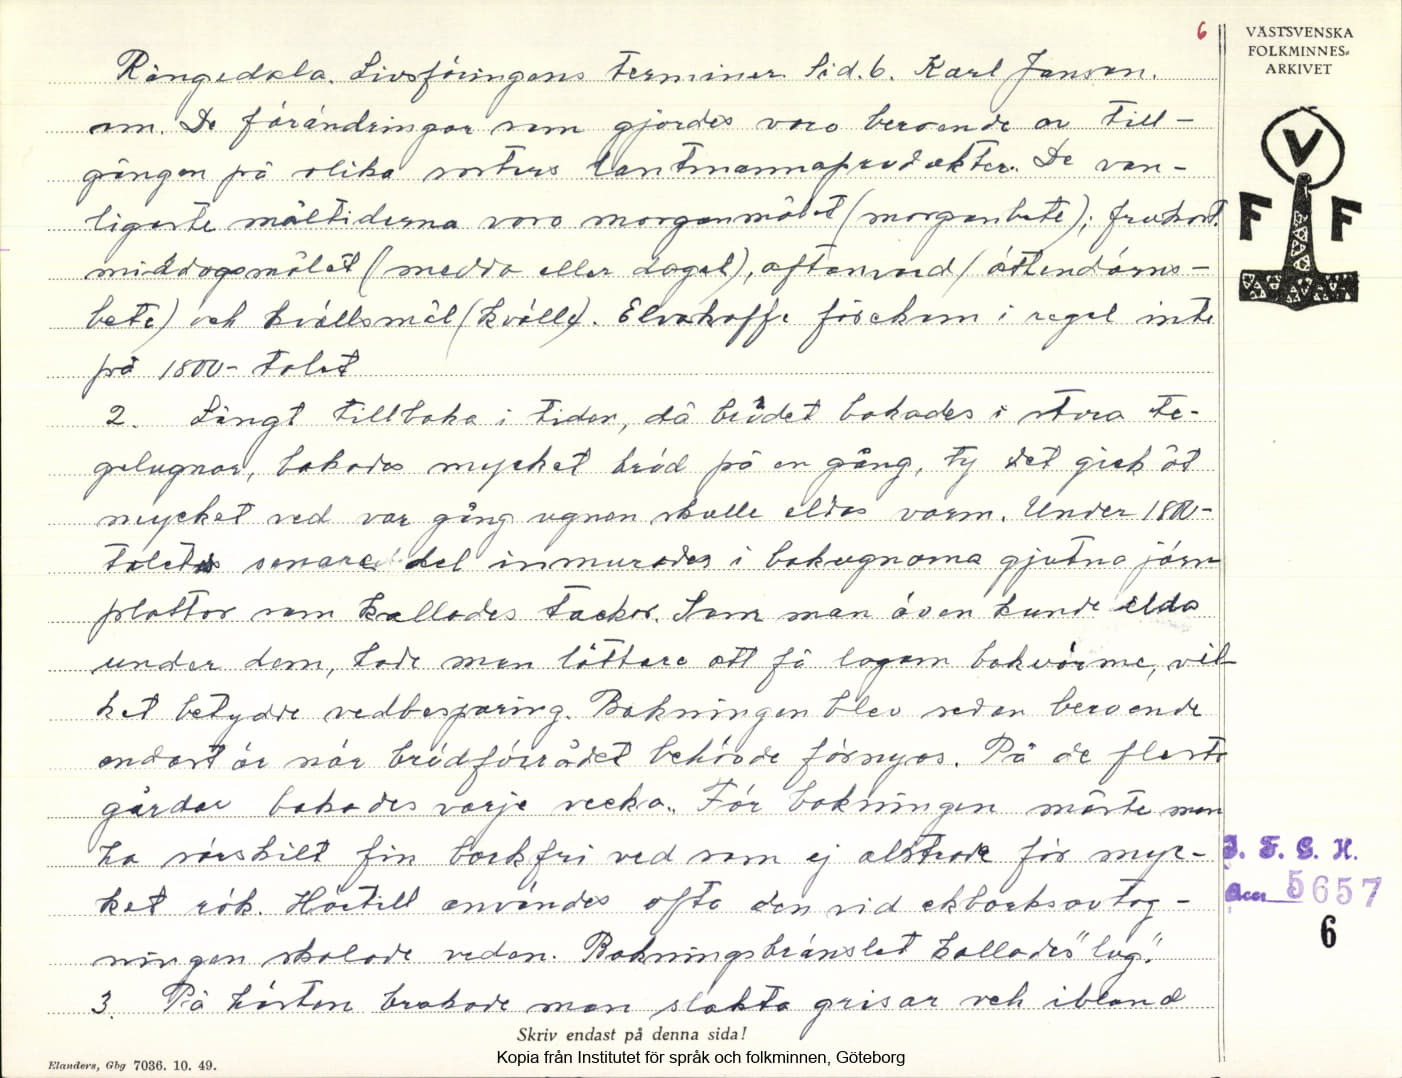 6
VÄSTSVENSKA
FOLKMINNES-
ARKIVET
V
F F
Rångedala. Livsföringens terminer Sid. 6. Karl Janson.
om. De förändringar som gjordes voro beroende av till-
gången på olika sorters lantmannaprodukter. De van-
ligaste måltiderna voro morgonmålet (morgonbete); frukost.
middagsmålet (medda eller dagel), aftonvard (åttendörns-
bete) och kvällsmål (kvälle). Elvakaffe förekom i regel inte
på 1800-talet
2. Långt tillbaka i tiden, då brödet bakades i stora te-
gelugnar, bakades mycket bröd på en gång, ty det gick åt
mycket ved var gång ugnen skulle eldas varm. Under 1800-
talets senare del inmurades i bakugnarna gjutna järn
plattor som kallades tackor. Som man även kunde elda
under dem, hade man lättare att få lagom bakvärme, vil-
ket betydde vedbesparing. Bakningen blev sedan beroende
endast är når brödförrådet behövde förnyas. På de flesta
gårdar bakades varje vecka. För bakningen måste man
ha särskilt fin barkfri ved som ej alstrade för myc-
ket rök. Härtill användes ofta den vid ekbarksavtag-
ningen skalade veden. Bakningsbränslet kallades "lug".
3. På hösten brukade man slakta grisar och ibland
I. F. G. H.
Acc 5657
6
Skriv endast på denna sida!
Elanders, Gbg 7036. 10. 49.
Kopia från Institutet för språk och folkminnen, Göteborg